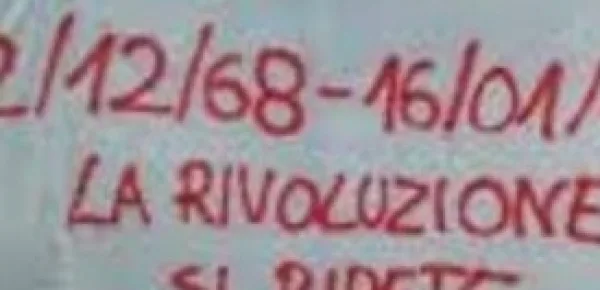 2/12/68-16/01/
LA RIVOLUZIONE
SI RIPETE